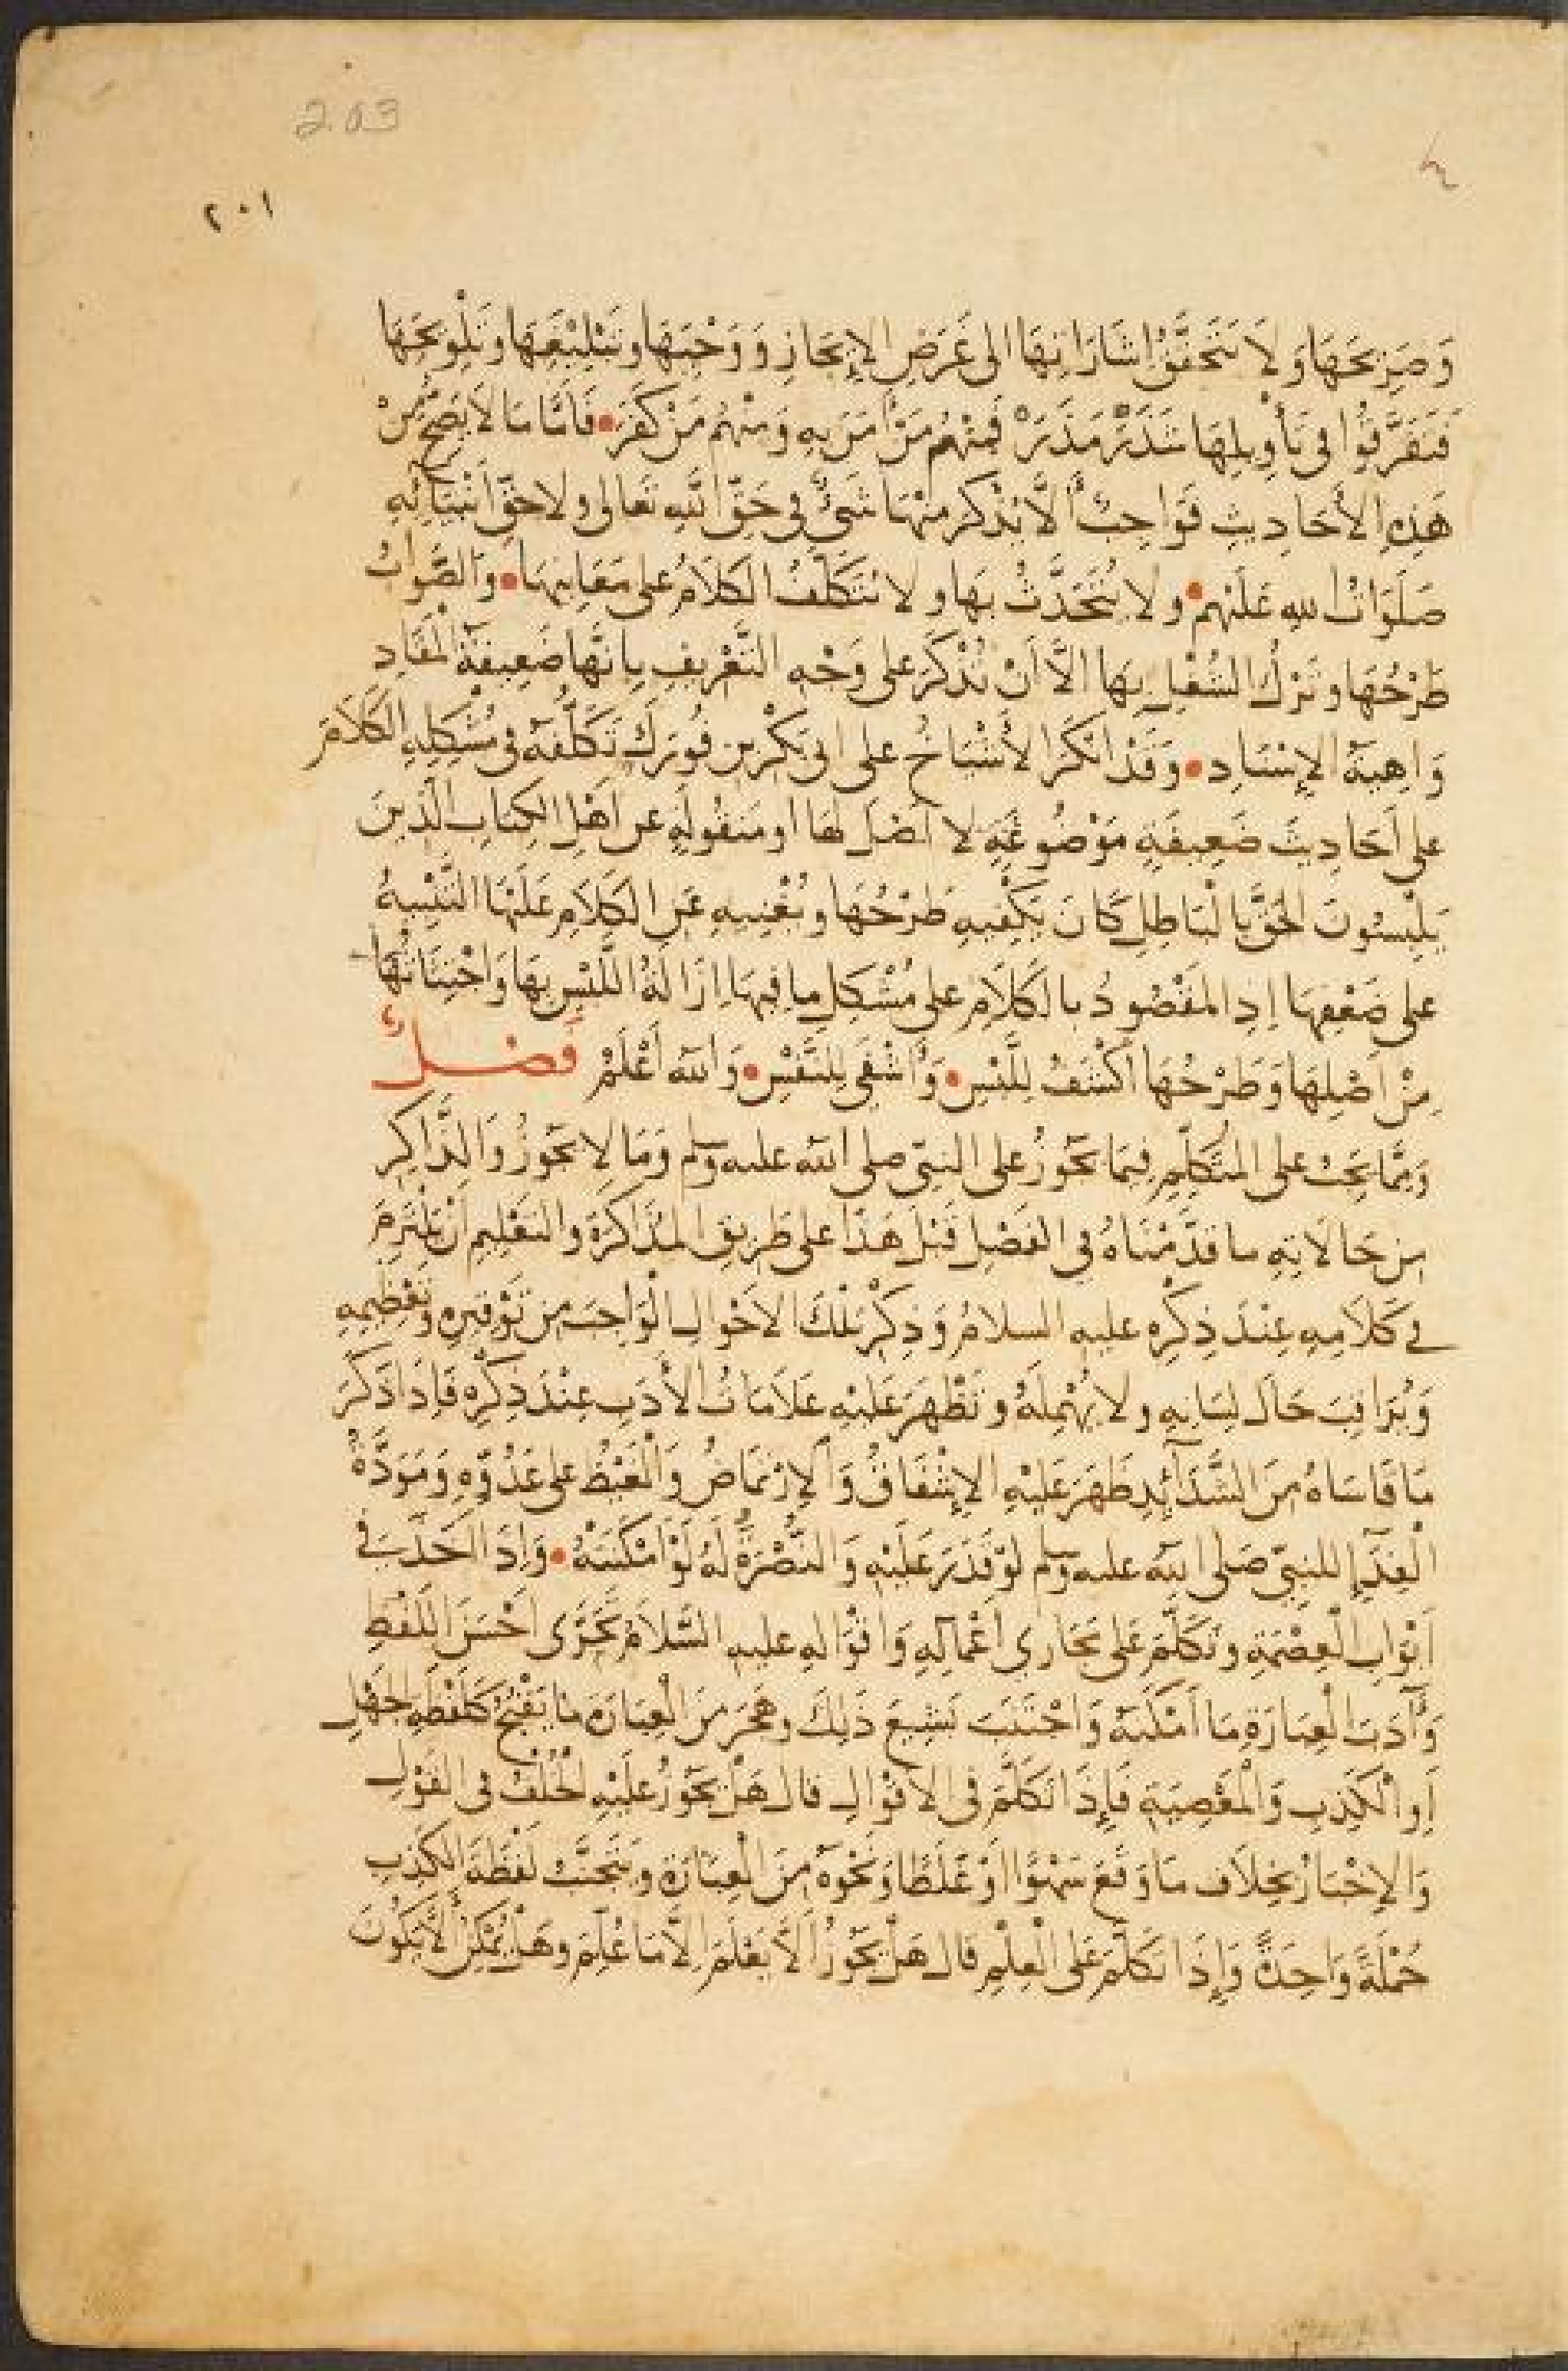 203
٢٠١
وَصَرِيحَهَا وَلَا يَتَحَقَّقُ اِشَارَاتِهَا الى غَرَضِ الإيجَازِ وَوَحْيِهَا وتَبْلِيْغِهَا وتَلْوِيحِهَا
فَتَفَرَّقُوا في تَأْوِيلِهَا شَذَرَ مَذَرَ فَمِنْهُم مَنْ اٰمَنَ بِهِ وَمِنْهُم مَنْ كَفَرَ • فَاَمَّا مَا لَا يَصِحُّ مِنْ
هَذِهِ الأَحَادِيثِ فَوَاجِبٌ أَلَّا يُذْكَر مِنْهَا شَيْءٌ في حَقِّ اللهِ تَعالى ولا حَقِّ اَنْبِيَائِهِ
صَلَوَاتُ اللهِ عَلَيْهِم • ولا يُتَحَدَّثُ بِهَا ولا يُتَكَلَّفُ الكَلَامُ على مَعَانِيهَا • وَالصَّوابُ
طَرْحُهَا وتَرْكُ الشُّغْلِ بِهَا الَّا اَنْ تُذْكَرَ على وَجْهِ التَّعْرِيفِ بِاَنَّهَا ضَعِيفَةُ الْمَقَادِ
وَاهِيَةُ الإِسْنَادِ • وَقَدْ اَنْكَرَ الأَشْيَاخُ على ابى بَكْرِ بن فُورَكَ تَكَلُّفَهُ فى مُشْكِلِهِ الكَلَامَ
على اَحَادِيثَ ضَعِيفَةٍ مَوْضُوعَةٍ لا اَصْلَ لهَا او مَنقُولَةٍ عن اَهْلِ الكِتَابِ الَّذِينَ
يَلْبِسُونَ الحَقَّ بِالْبَاطِلِ كَانَ يَكْفِيهِ طَرْحُهَا ويُغْنِيهِ عَنِ الكَلَامِ عَلَيْهَا التَّنْبِيهُ
على ضَعْفِهَا اِذِ المَقْصُودُ بالكَلَامِ على مُشْكِلِ ما فِيهَا اِزَالَةُ اللَّبْسِ بِهَا وَاجْتِثَاثُهَا
مِنْ اَصْلِهَا وَطَرْحُهَا أَكْشَفُ لِلَّبْسِ • وَأَشْفَى لِلنَّفْسِ • وَاللهُ أَعْلَمُ فصل
وَمِمَّا يَجِبُ على المتَكَلِّمِ فِيمَا يَجُوزُ على النبىّ صلى الله عليه وسلم وَمَا لا يَجُوزُ وَالذَّاكِرِ
مِن حَالَاتِهِ ما قَدَّمْنَاهُ في الفَصْلِ قَبْلَ هَذَا على طَرِيقِ المُذَاكَرَةِ والتَعْلِيمِ اَنْ يَلْتَزِمَ
في كَلَامِهِ عِنْدَ ذِكْرِهِ عليه السلامُ وَذِكْرِ تِلْكَ الاَحْوالِ الْوَاجِبَ مِن تَوْقِيرِهِ وتَعْظِيمِهِ
وَيُرَاقِبَ حَالَ لِسَانِهِ ولا يُهْمِلَهُ وتَظْهَرَ عَلَيْهِ عَلَامَاتُ الأَدَبِ عِنْدَ ذِكْرِهِ فَاِذَا ذَكَرَ
مَا قَاسَاهُ مِنَ الشَّدَآئِدِ ظَهَرَ عَلَيْهِ الإِشْفَاقُ وَالاِرْتمَاضُ وَالْغَيْظُ على عَدُوِّهِ وَمَوَدَّةُ
الْفِدَآءِ للنبىّ صَلى الله عليه وسلم لوْ قَدَرَ عَلَيْهِ وَالنُّصْرَةُ لَهُ لَوْ اَمْكَنَتْهُ • وَاِذَا اَخَذَ فى
اَبْوَابِ الْعِصْمَةِ وتَكَلَّمَ على مَجَارِي اَعْمَالِهِ وَاَقْوَالِهِ عليه السَّلَامُ تَحَرَّى اَحْسَنَ اللَّفْظِ
وَأَدَبَ الْعِبَارَةِ مَا اَمْكَنَهُ وَاجْتَنَبَ بَشِيعَ ذَلِكَ وهَجَرَ مِنَ الْعِبَارَةِ مَا يَقْبُحُ كَلَفْظَةِ الجَهْلِ
اَوِ الْكَذِبِ وَالْمَعْصِيَةِ فَاِذَا تَكَلَّمَ فى الاَقْوَالِ قال هَلْ يَجُوزُ عَلَيْهِ الْخُلْفُ فى القَوْلِ
وَالاِخْبَارُ بِخِلَافِ مَا وَقَعَ سَهْوًا اَوْ غَلَطًا وَنَحْوَهُ مِنَ الْعِبَارَةِ ويَتَجَنَّبُ لَفْظَةَ الكَذِبِ
جُمْلَةً وَاحِدَةً وَاِذَا تَكَلَّمَ عَلى الْعِلْمِ قالَ هَلْ يَجُوزُ اَلَّا يَعْلَمَ اِلَّا مَا عُلِّمَ وهَلْ يُمْكِنُ أَلَّا يَكُونَ